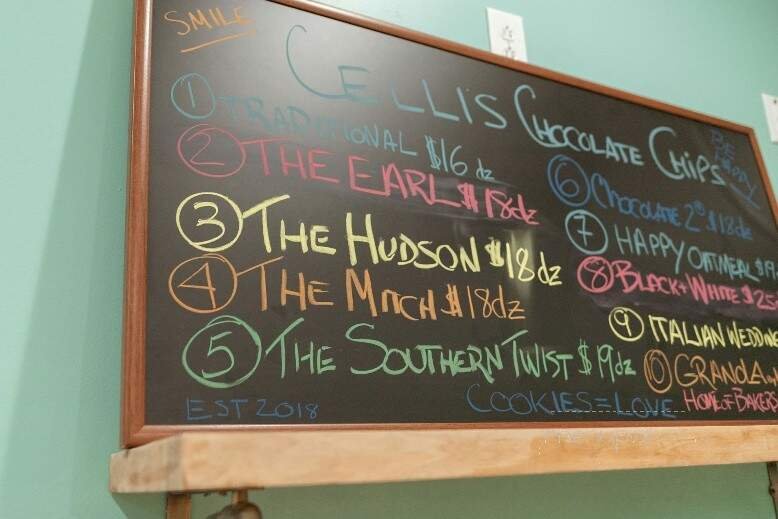 SMILE
CELLIS CHOCOLATE CHIPS
BE HAPPY
1 TRADITIONAL $16 dz
2 THE EARL $18dz
3 THE HUDSON $18dz
4 THE MITCH $18dz
5 THE SOUTHERN TWIST $19dz
6 CHOCOLATE 2 $18dz
7 HAPPY OATMEAL $19
8 BLACK + WHITE $25
9 ITALIAN WEDDING
10 GRANOLA
EST 2018
COOKIES = LOVE
HOME OF BAKERS